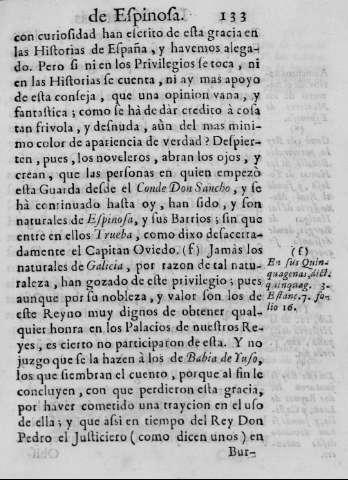 de Espinosa. 133
con curiosidad han escrito de esta gracia en
las Historias de España, y havemos alega-
do. Pero si ni en los Privilegios se toca, ni
en las Historias se cuenta, ni ay mas apoyo
de esta conseja, que una opinion vana, y
fantastica; como se hà de dàr credito à cosa
tan frivola, y desnuda, aùn del mas mini-
mo color de apariencia de verdad? Despier-
ten, pues, los noveleros, abran los ojos, y
crean, que las personas en quien empezò
esta Guarda desde el Conde Don Sancho, y se
hà continuado hasta oy, han sido, y son
naturales de Espinosa, y sus Barrios; sin que
entre en ellos Trueba, como dixo desacerta-
damente el Capitan Oviedo. (f) Jamàs los
naturales de Galicia, por razon de tal natu-
raleza, han gozado de este privilegio; pues
aunque por su nobleza, y valor son los de
este Reyno muy dignos de obtener qual-
quier honra en los Palacios de nuestros Re-
yes, es cierto no participaron de esta. Y no
juzgo que se la hazen à los de Babia de Yuso,
los que siembran el cuento, porque al fin le
concluyen, con que perdieron esta gracia,
por haver cometido una traycion en el uso
de ella; y que assi en tiempo del Rey Don
Pedro el Justiciero (como dicen unos) en
Bur-
(f)
En sus Quin-
quagenas, dict.
quinquag. 3.
Estanc. 7. fo-
lio 16.